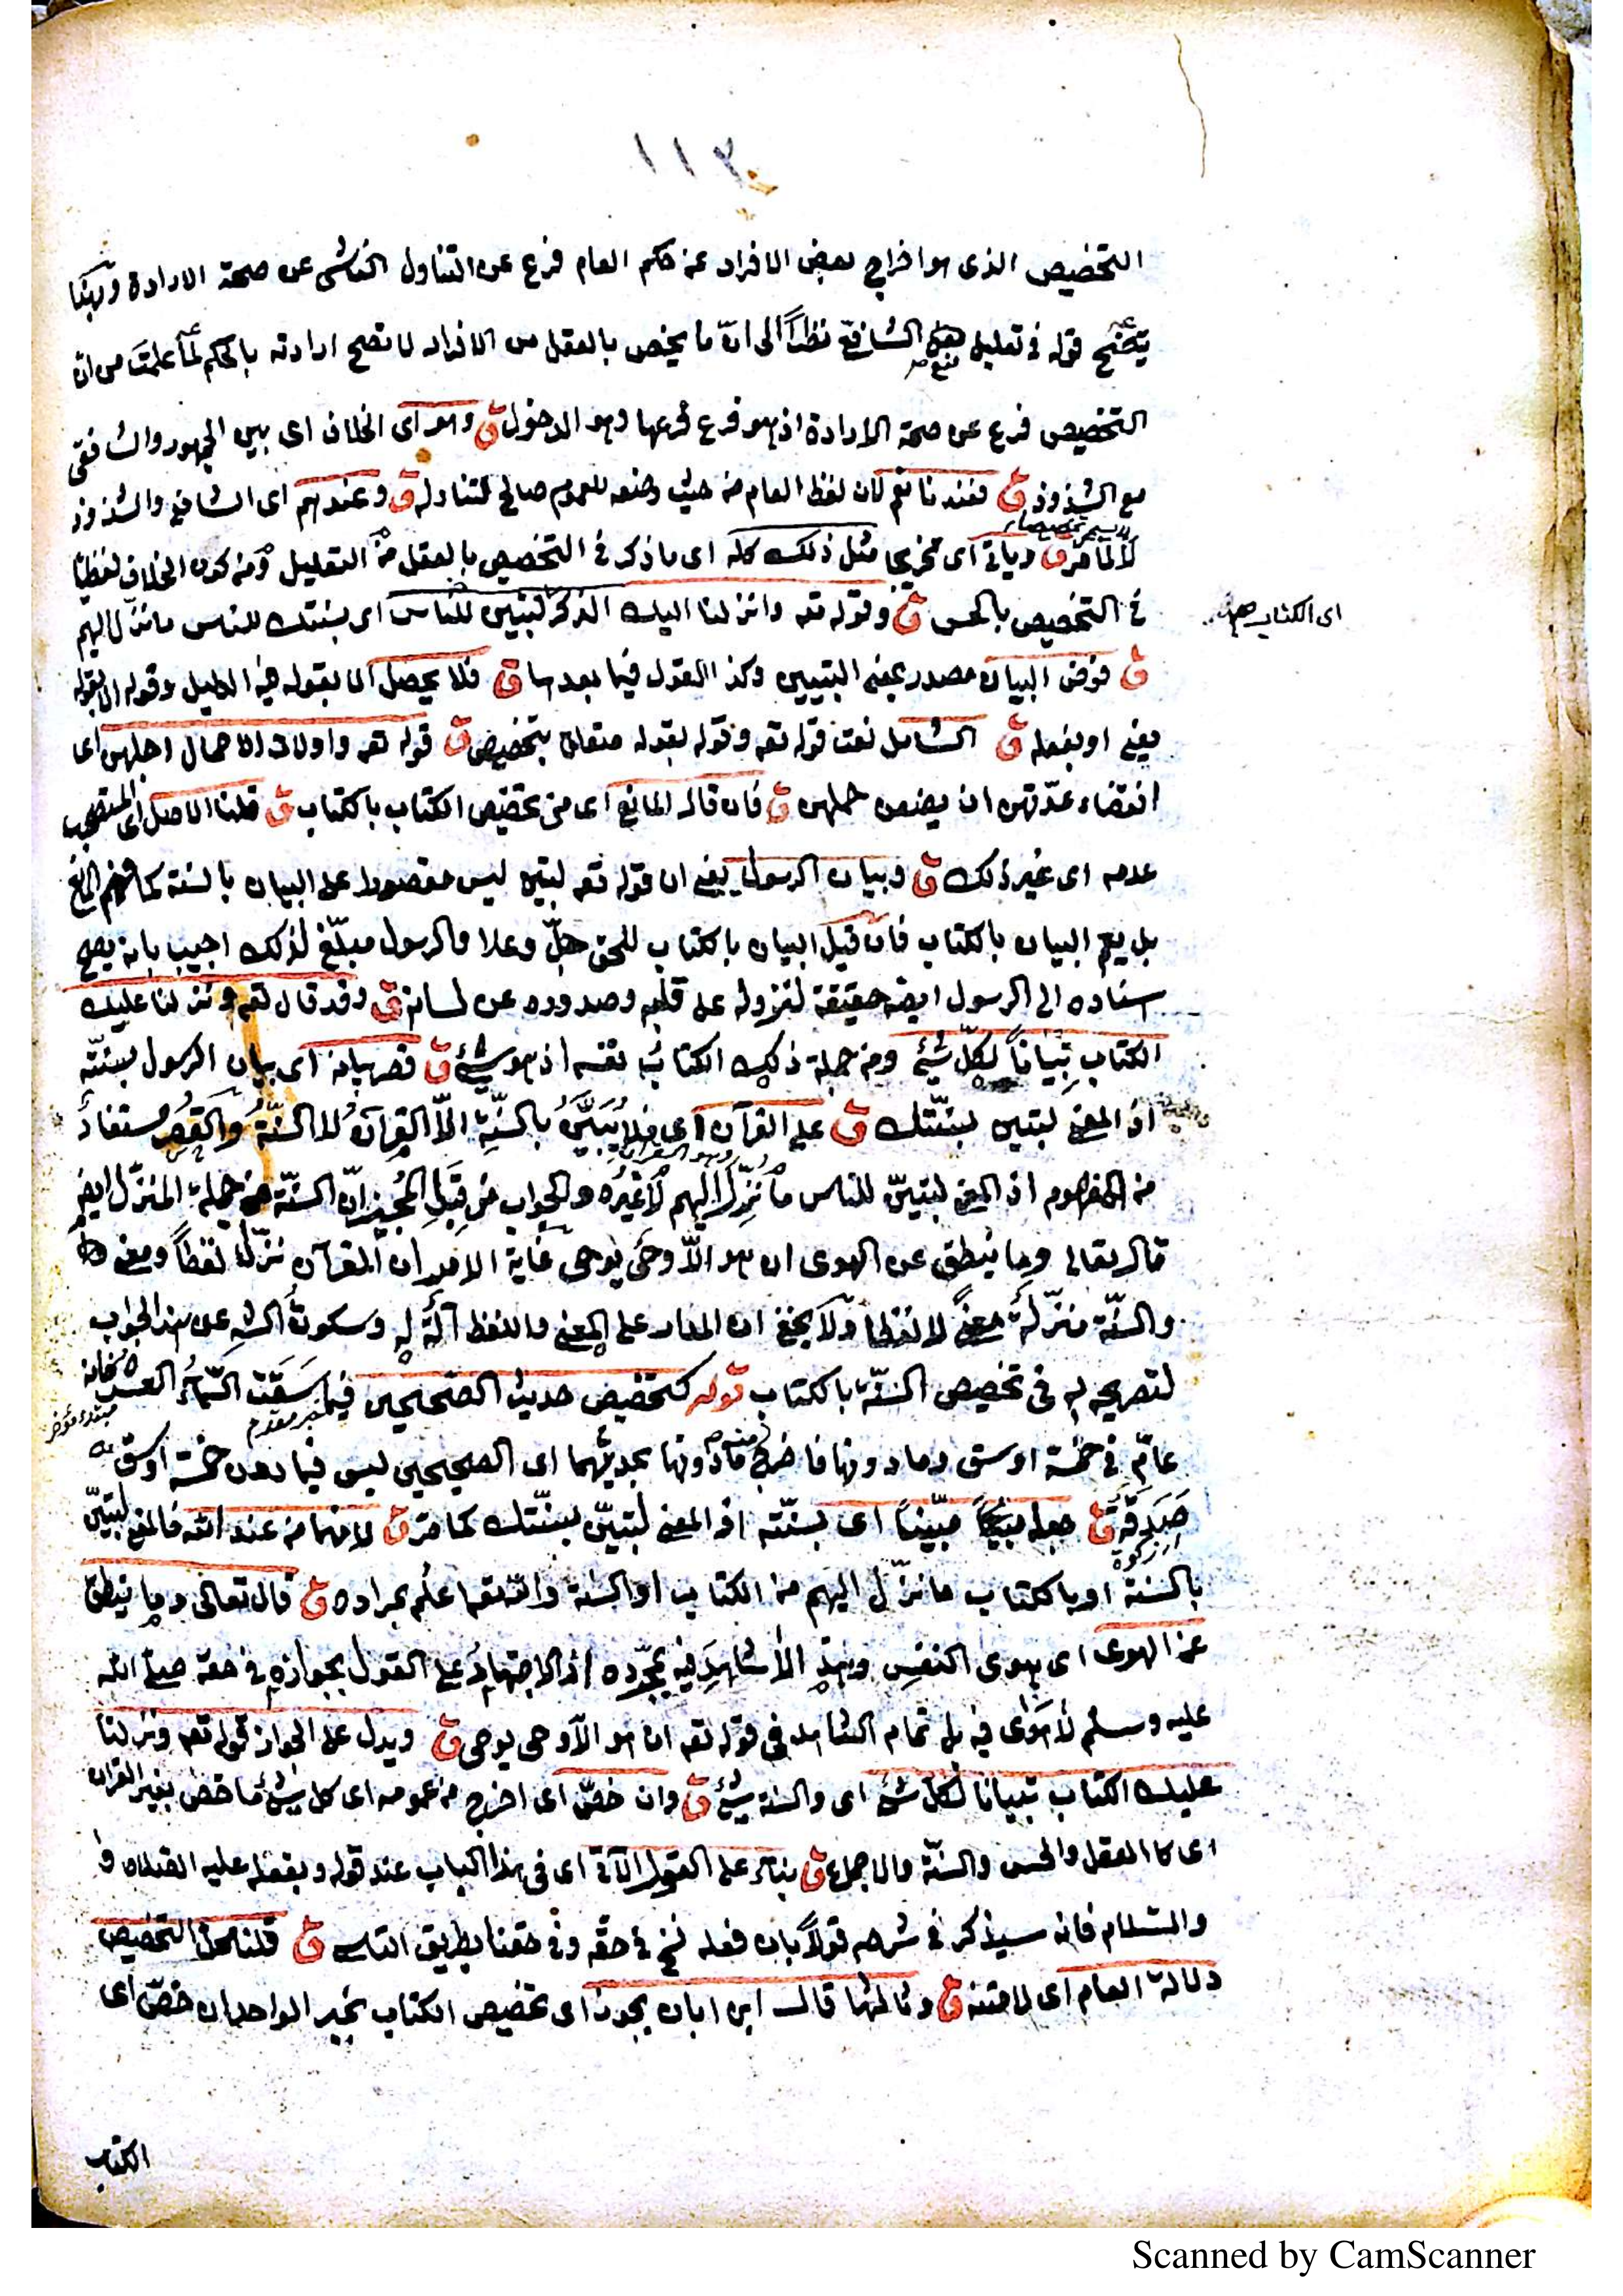 ١١٢
التخصيص الذى هو اخراج بعض الافراد عن حكم العام فرع عن التناول الناشى عن صحة الارادة وبهذا
يتضح قوله فى تعليل منع الشافعى نظرًا الى انّ ما يخص بالعقل من الافراد لا تصح ارادته بالحكم لما علمتَ من انّ
التخصيص فرع عن صحة الارادة اذ هو فرع فرعها وهو الدخول ق وهو اى الخلاف اى بين الجمهور والشافعى
مع الشذوذ ق فعندنا نعم لان لفظ العام من حيث وضعه للعموم صالح لتناوله ق وعندهم اى الشافعى والشذوذ
لا لما مرّ ق ويأتى اى تخريجا مثل ذلك كله اى ما ذكر فى التخصيص بالعقل من التعليل ومن كون الخلاف لفظيًا
فى التخصيص بالحس ق وقوله تعه وانزلنا اليك الذكر لتبين للناس اى بسنتك للناس ما نزل اليهم
اى الكتاب
ق فوّض البيان مصدر بمعنى التبيين وكذا القول فيما بعدها ق فلا يحصل الا بقوله هى الدليل وقوله الا بقوله
يعنى او بفعله ق الشامل نعت قوله تعه وقوله بقوله متعلق بتخصيص ق قوله تعه واولات الاحمال اجلهن اى
انقضاء عدّتهن ان يضعن حملهن ق فان قال المانع اى من تخصيص الكتاب بالكتاب ق قلنا الاصل اى المستصحب
عدمه اى غير ذلك ق وبيان الرسول يعنى ان قوله تعه لتبين ليس مقصورا على البيان بالسنة كما فهم المانع
بل يعم البيان بالكتاب فان قيل البيان بالكتاب للحق جلّ وعلا والرسول مبلّغ لذلك اجيب بانه يصح
اسناده الى الرسول ايضه حقيقة لنزوله على قلبه وصدوره عن لسانه ق وقد قال تعه ونزلنا عليك
الكتاب تبيانًا لكلّ شئ ومن جملة ذلك الكتابُ نفسه اذ هو شئ ق قصر بيانه اى بيان الرسول بسنّته
اذ المعنى لتبين بسنّتك ق على القرآن اى فلا يُبَيَّنُ بالسنّةِ الاّ القرآنُ لا السنّةُ والقصر مستفادٌ
من المفهوم اذ المعنى لتبيّن للناس ما نُزِّلَ اليهم لا غيرُه والجواب من قِبَلِ المُجيز انّ السنّة من جملة المنزّل ايضه
قال تعالى وما ينطق عن الهوى ان هو الاّ وحىٌ يوحى غاية الامر ان القرآن نزّل لفظًا ومعنى
والسنّة منزّلةٌ معنىً لا لفظا ولا يخفى ان المدار على المعنى واللفظ آلةٌ له وسكوتُ الشه عن هذا الجواب
لتصريحه به فى تخصيص السنّة بالكتاب قوله كتخصيص حديث الصحيحين فيما سقت السّماءُ العشر فانه
خبر مقدم
مبتدء مؤخر
عامّ فى خمسة اوسق وما دونها فاخرج ما دونها بحديثهما اى الصحيحين ليس فيما دون خمسة اوسق
صَدَقَةٌ ق جعله مبيِّنًا اى بسنّته اذ المعنى لتبيّن بسنّتك كما مرّ ق لانهما من عند الله فالمعنى لتبيّن
اى زكوة
بالسنة او بالكتاب ما نزّل اليهم من الكتاب او السنة والله تعه اعلم بمراده ق قال تعالى وما ينطق
عن الهوى اى هوى النفس وهذِه لا شاهدَ فيه بمجرّده اذ الاجتهادُ على القول بجوازه فى حقه صلى الله
عليه وسلم لا هوًى فيه بل تمام الشاهد فى قوله تعه ان هو الاّ وحى يوحى ق ويدل على الجواز قوله تعه ونزلنا
عليك الكتاب تبيانا لكل شئ اى والسنة شئ ق وان خصّ اى اخرج من عمومه اى كل شئ ما خص بغير القران
اى كالعقل والحس والسنّة والاجماع ق بناء على القول الآتى اى فى هذا الكتاب عند قوله وبفعله عليه الصلاة و
والسّلام فانه سيذكر فى شرحه قولًا بان فعله نسخ فى حقّه وفى حقنا بطريق التاسى ق قلنا محل التخصيص
دلالة العام اى لا متنه ق وثالثها قال ابن ابان يجوز اى تخصيص الكتاب بخبر الواحد ان خصّ اى
الكتاب
Scanned by CamScanner